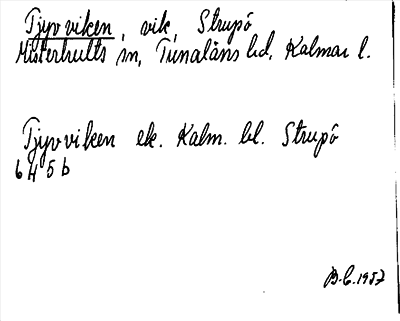 Tjyvviken, vik, Strupö
Misterhults sn, Tunaläns hd, Kalmar l.
Tjyvviken ek. Kalm. bl. Strupö
6 4 5 b
B.C. 1957